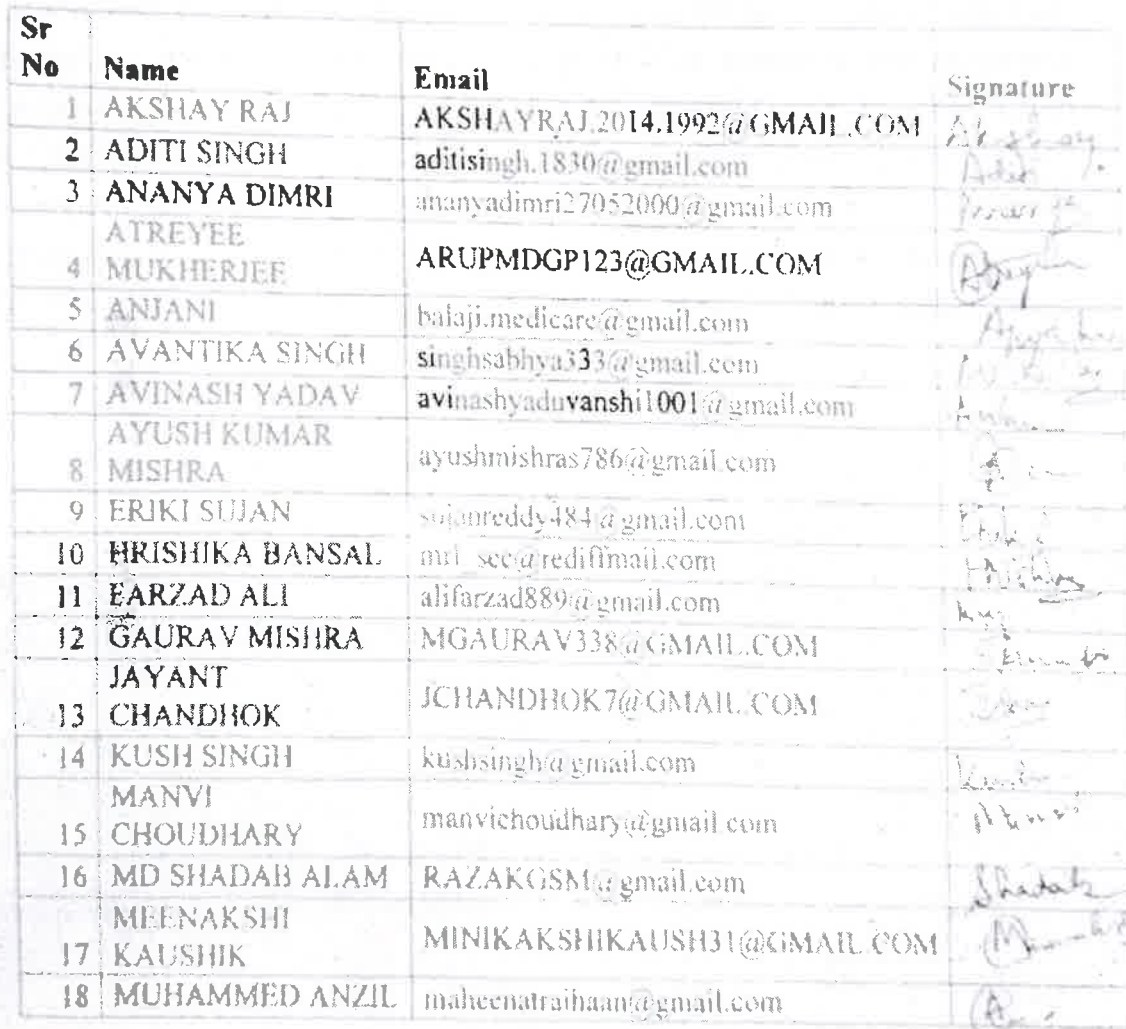 Sr
No Name Email Signature
1 AKSHAY RAJ AKSHAYRAJ.2014.1992@GMAIL.COM Akshay
2 ADITI SINGH aditisingh.1830@gmail.com Aditi
3 ANANYA DIMRI ananyadimri27052000@gmail.com
ATREYEE
4 MUKHERJEE ARUPMDGP123@GMAIL.COM
5 ANJANI balaji.medicare@gmail.com
6 AVANTIKA SINGH singhsabhya333@gmail.com
7 AVINASH YADAV avinashyaduvanshi1001@gmail.com
AYUSH KUMAR
8 MISHRA ayushmishras786@gmail.com
9 ERIKI SUJAN sujanreddy484@gmail.com
10 HRISHIKA BANSAL mrl_scc@rediffmail.com
11 EARZAD ALI alifarzad889@gmail.com
12 GAURAV MISHRA MGAURAV338@GMAIL.COM
JAYANT
13 CHANDHOK JCHANDHOK7@GMAIL.COM
14 KUSH SINGH kushsingh@gmail.com
MANVI
15 CHOUDHARY manvichoudhary@gmail.com
16 MD SHADAB ALAM RAZAKGSM@gmail.com Shadab
MEENAKSHI
17 KAUSHIK MINIKAKSHIKAUSH31@GMAIL.COM
18 MUHAMMED ANZIL maheenatraihaan@gmail.com